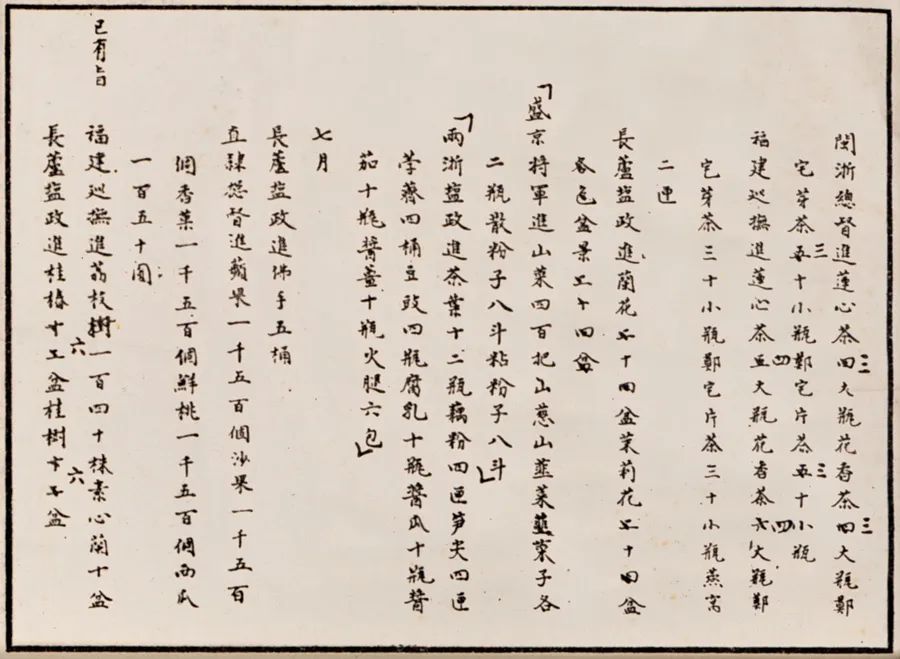 閩浙總督進蓮心茶四大瓶花香茶四大瓶鄭
三
三
宅芽茶五十小瓶鄭宅片茶五十小瓶
三
三
福建巡撫進蓮心茶五大瓶花香茶六大瓶鄭
四
四
宅芽茶三十小瓶鄭宅片茶三十小瓶燕窩
二匣
長蘆鹽政進蘭花五十四盆茉莉花五十四盆
各色盆景五十四盆
盛京將軍進山菜四百把山葱山韮菜韮菜子各
二瓶散粉子八斗粘粉子八斗
兩浙鹽政進茶葉十二瓶藕粉四匣笋尖四匣
荸薺四桶豆豉四瓶腐乳十瓶醬瓜十瓶醬
茄十瓶醬薑十瓶火腿六包
七月
長蘆鹽政進佛手五桶
直隸總督進蘋果一千五百個沙果一千五百
個香菓一千五百個鮮桃一千五百個西瓜
一百五十圓
已有旨
福建巡撫進荔枝樹一百四十株素心蘭十盆
長蘆鹽政進桂椿十五盆桂樹十五盆
六
六